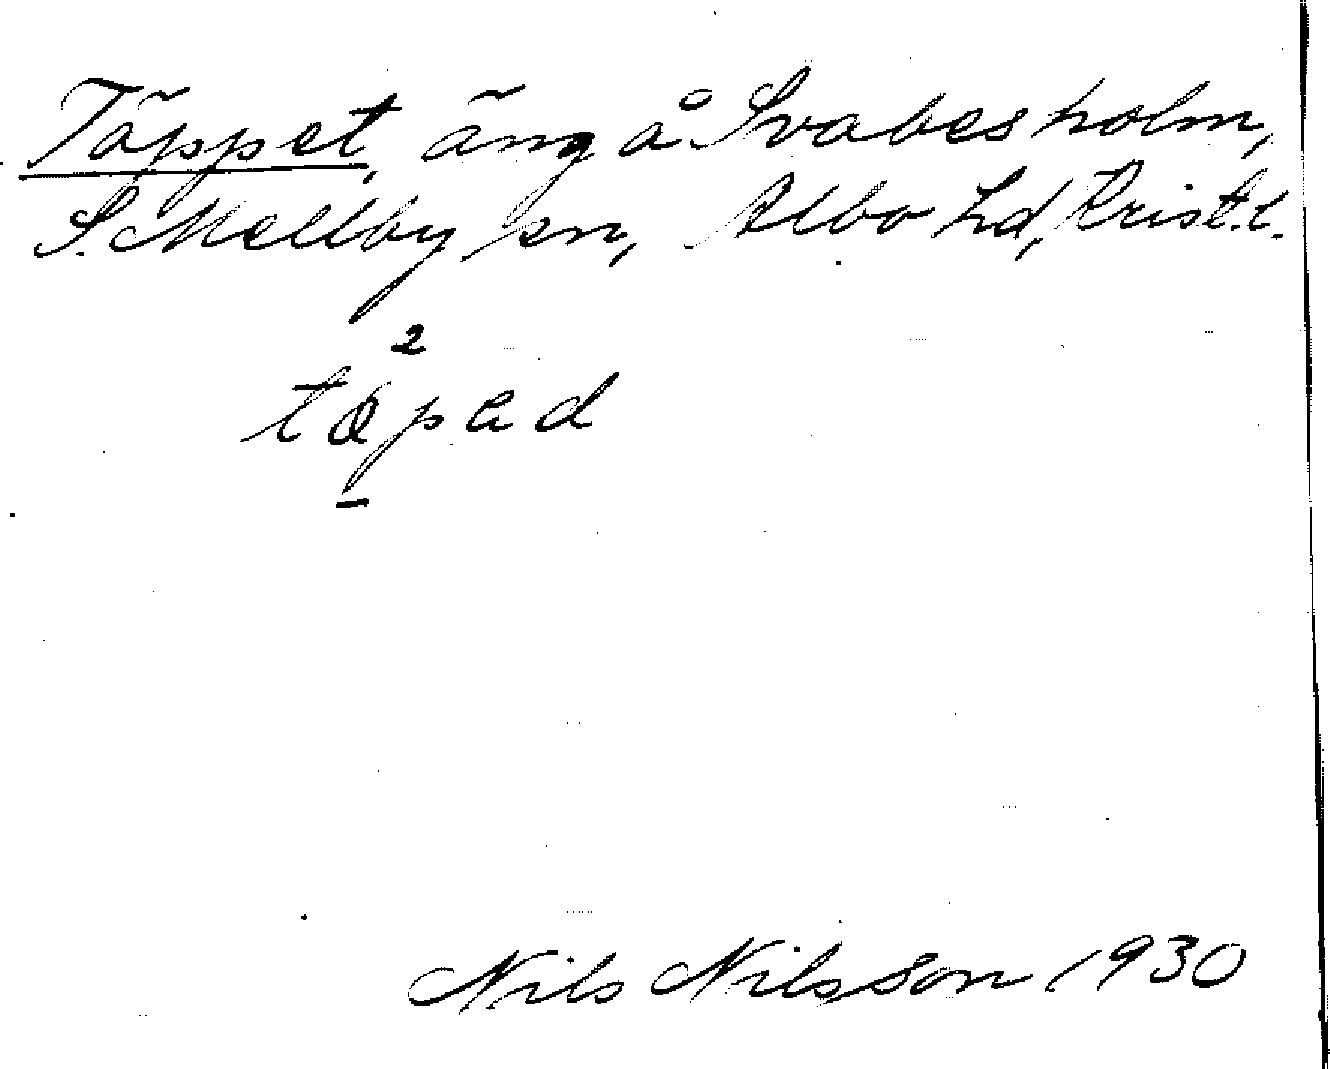 Täppet, äng å Svabesholm,
S. Mellby sn, Albo hd, Krist. l.
Nils Nilsson 1930